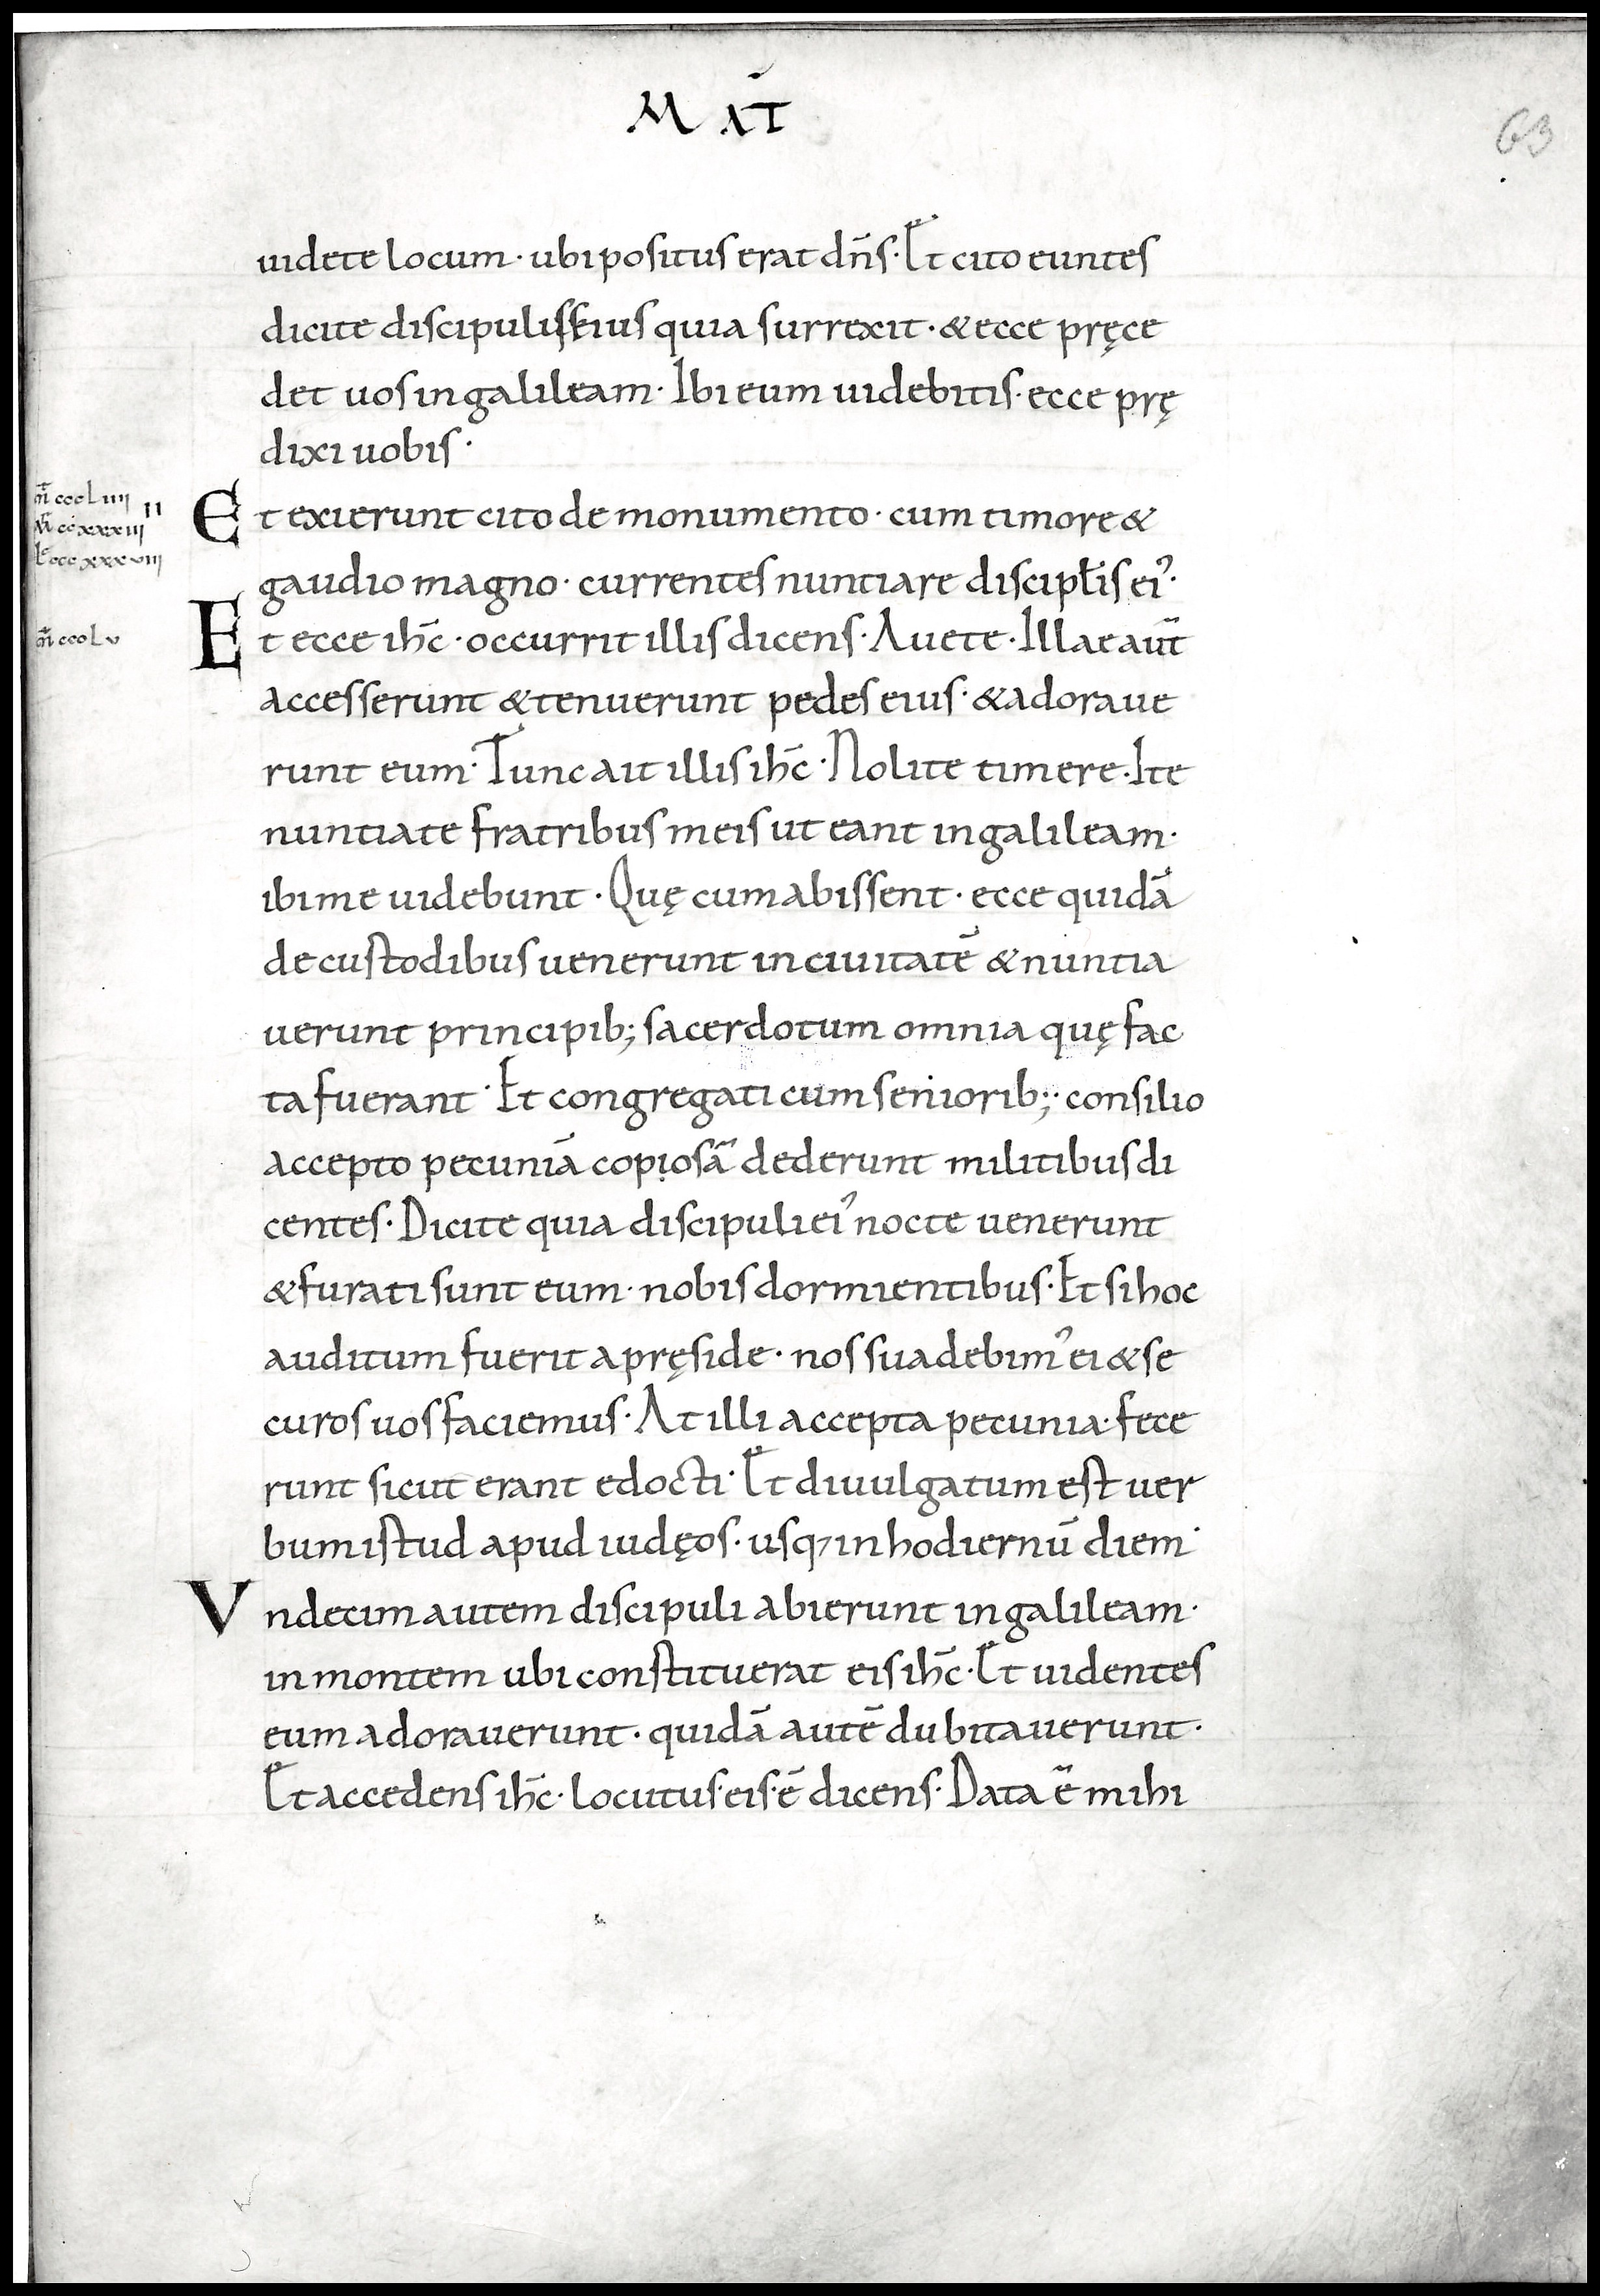 MAT̄
63
uidete locum · ubi positus erat dn̄s · Et cito euntes
dicite discipulis eius quia surrexit · & ecce pręce
det uos in galileam · Ibi eum uidebitis · ecce prę
dixi uobis ·
m̄t cccLiiii
m̄r ccxxxiii ii
Et exierunt cito de monumento · cum timore &
lc̄ cccxxxviii
gaudio magno · currentes nuntiare discipłis ei᾽ ·
m̄t cccLv
Et ecce ih̄c · occurrit illis dicens · Auete · Illae aut̄
accesserunt & tenuerunt pedes eius · & adoraue
runt eum · Tunc ait illis ih̄c · Nolite timere · Ite
nuntiate fratribus meis ut eant in galileam ·
ibi me uidebunt · Quę cum abissent · ecce quidā
de custodibus uenerunt in ciuitatē & nuntia
uerunt principib; sacerdotum omnia quę fac
ta fuerant · Et congregati cum seniorib; · consilio
accepto pecuniā copiosā dederunt militibus di
centes · Dicite quia discipuli ei᾽ nocte uenerunt
& furati sunt eum · nobis dormientibus · Et si hoc
auditum fuerit a pręside · nos suadebim᾽ ei & se
curos uos faciemus · At illi accepta pecunia · fece
runt sicut erant edocti · Et diuulgatum est uer
bum istud apud iudęos · usq; in hodiernū diem ·
Vndecim autem discipuli abierunt in galileam ·
in montem ubi constituerat eis ih̄c · Et uidentes
eum adorauerunt · quidā autē dubitauerunt ·
Et accedens ih̄c · locutus · eis · ē dicens · Data ē mihi